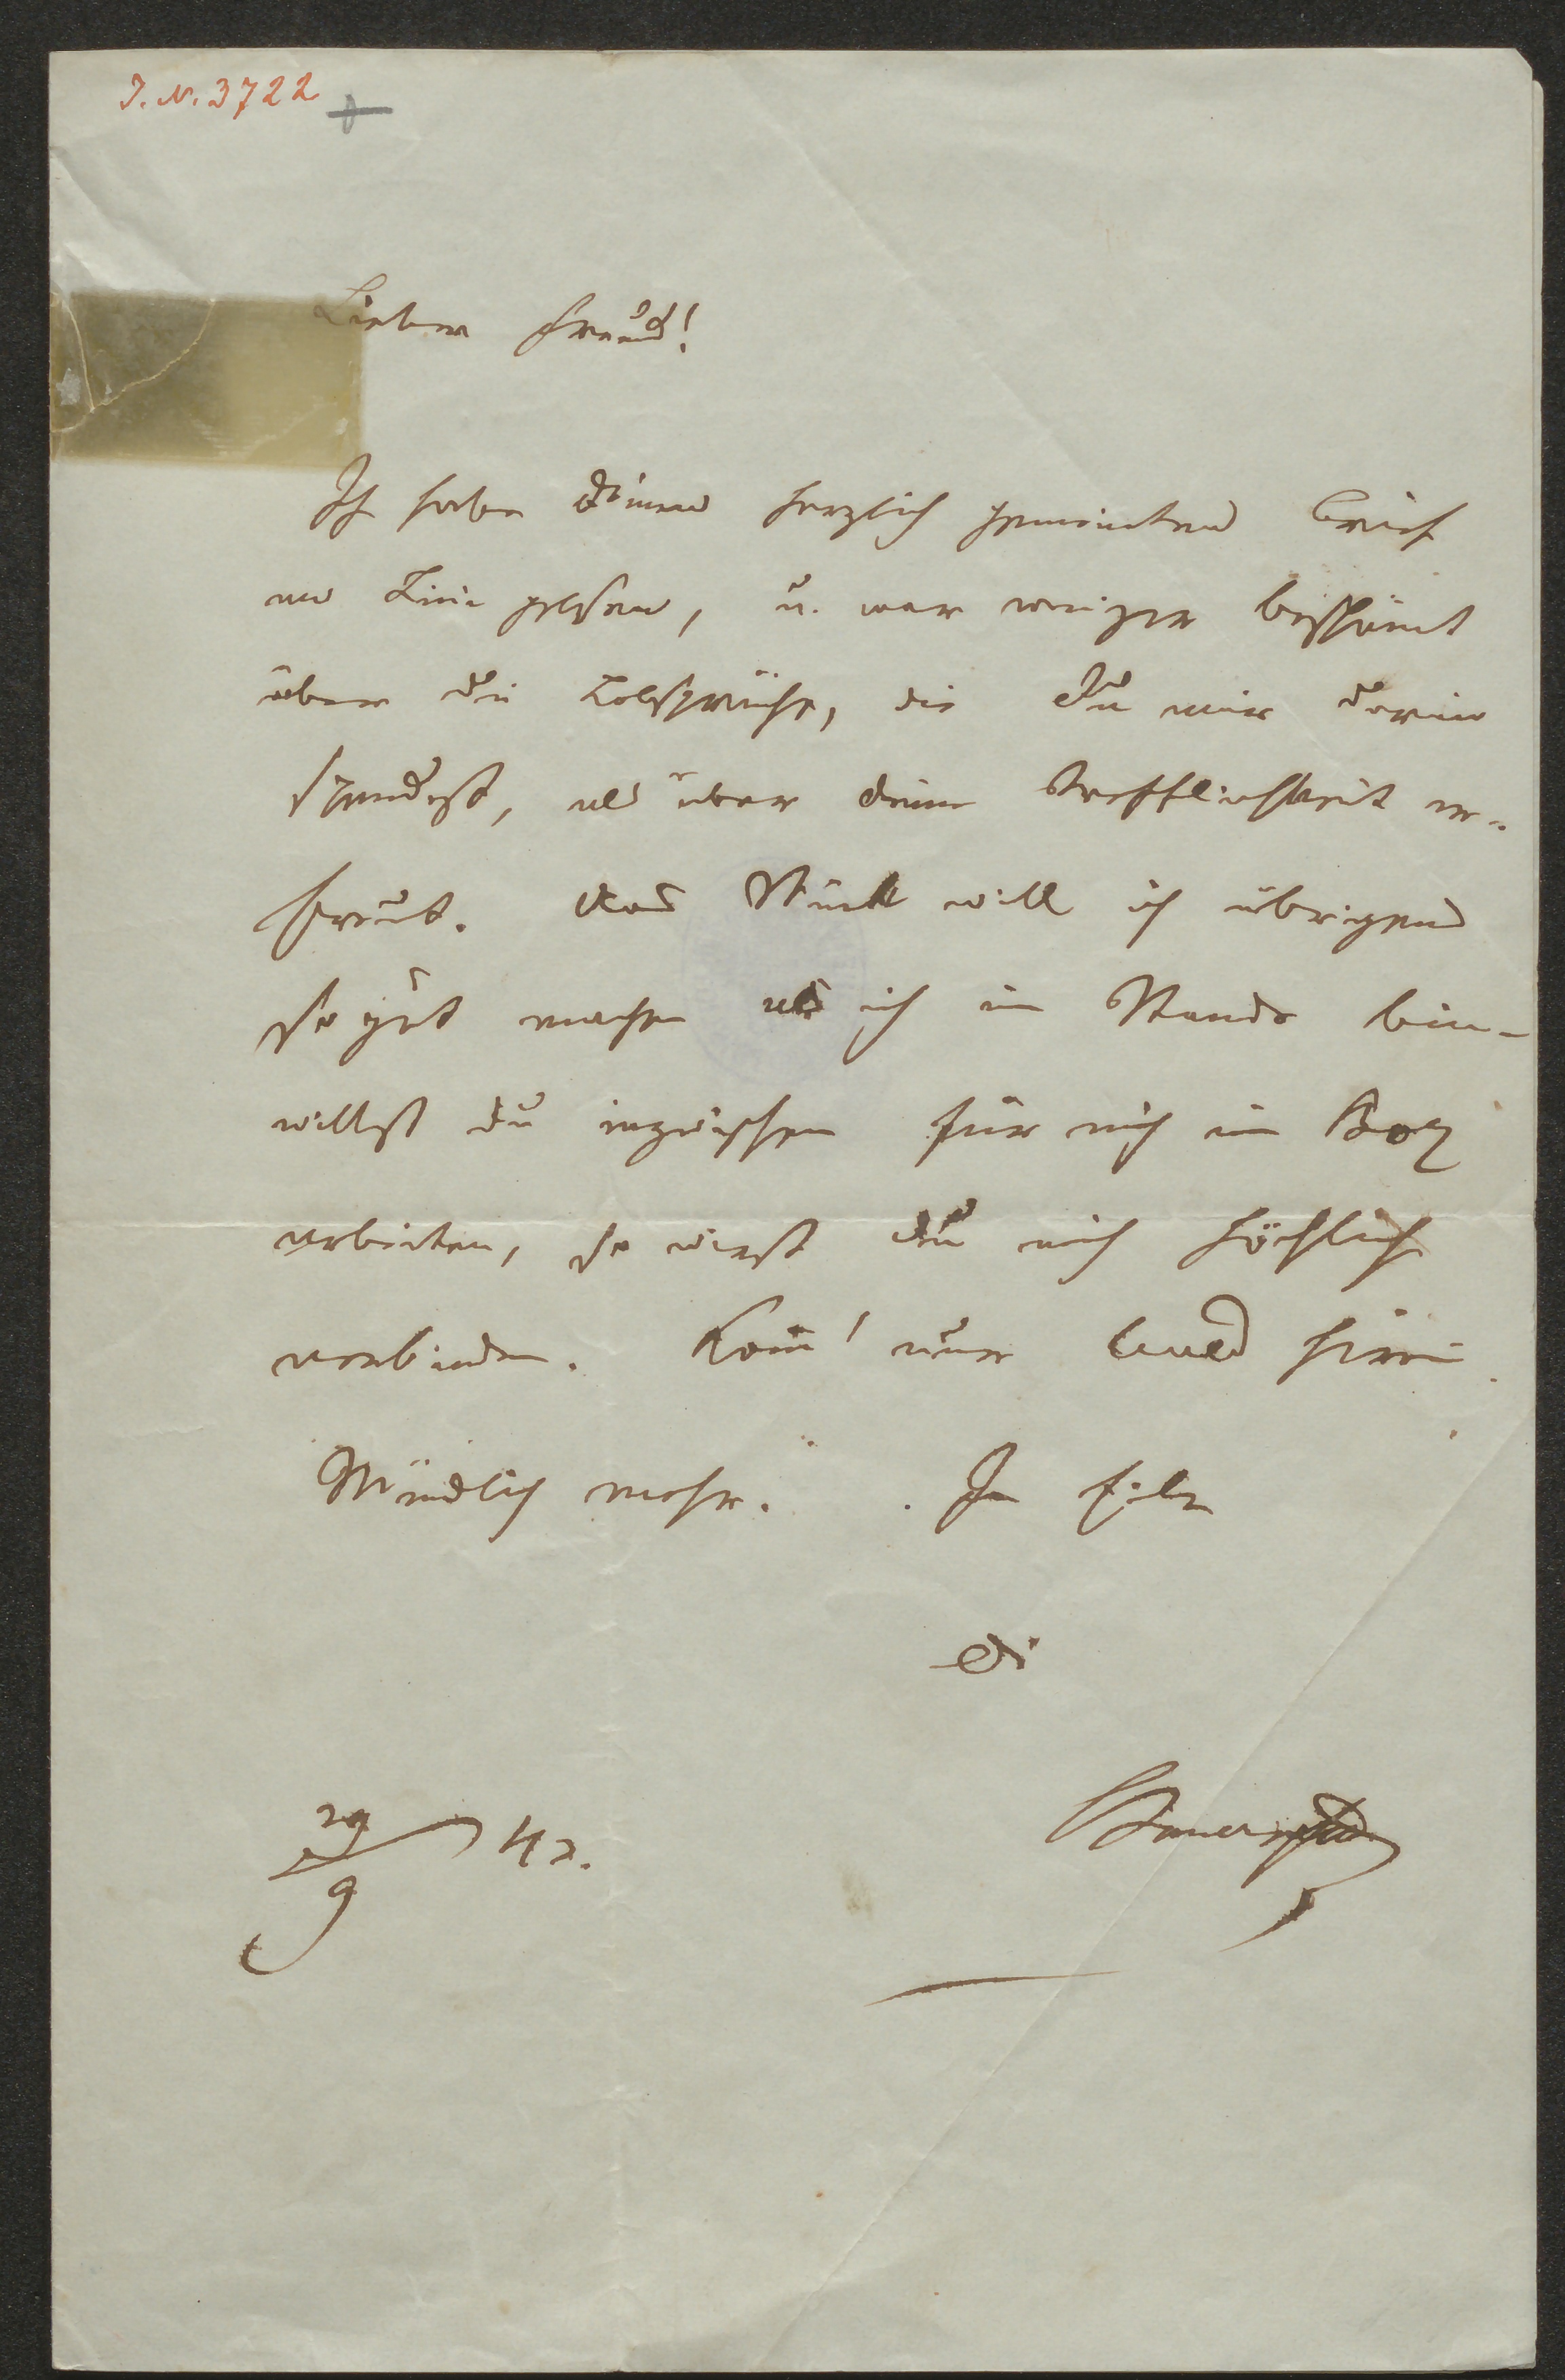 J. N. 3722
Lieber Freund!
Ich habe Deinen herzlich gemeinten Brief
an gelesen, u. war weniger beschämt
über die Lobsprüche, die Du mir darin
spendest, als über deine Trefflichkeit er-
freut. Das Stück will ich übrigens
so gut machen als ich im Stande bin -
willst du inzwischen für mich im
arbeiten, so wirst Du mich höchlich
verbinden. Kom̄' nur bald herein
Mündlich mehr. In Eile
Dr
29/9 42.
Bauernfeld